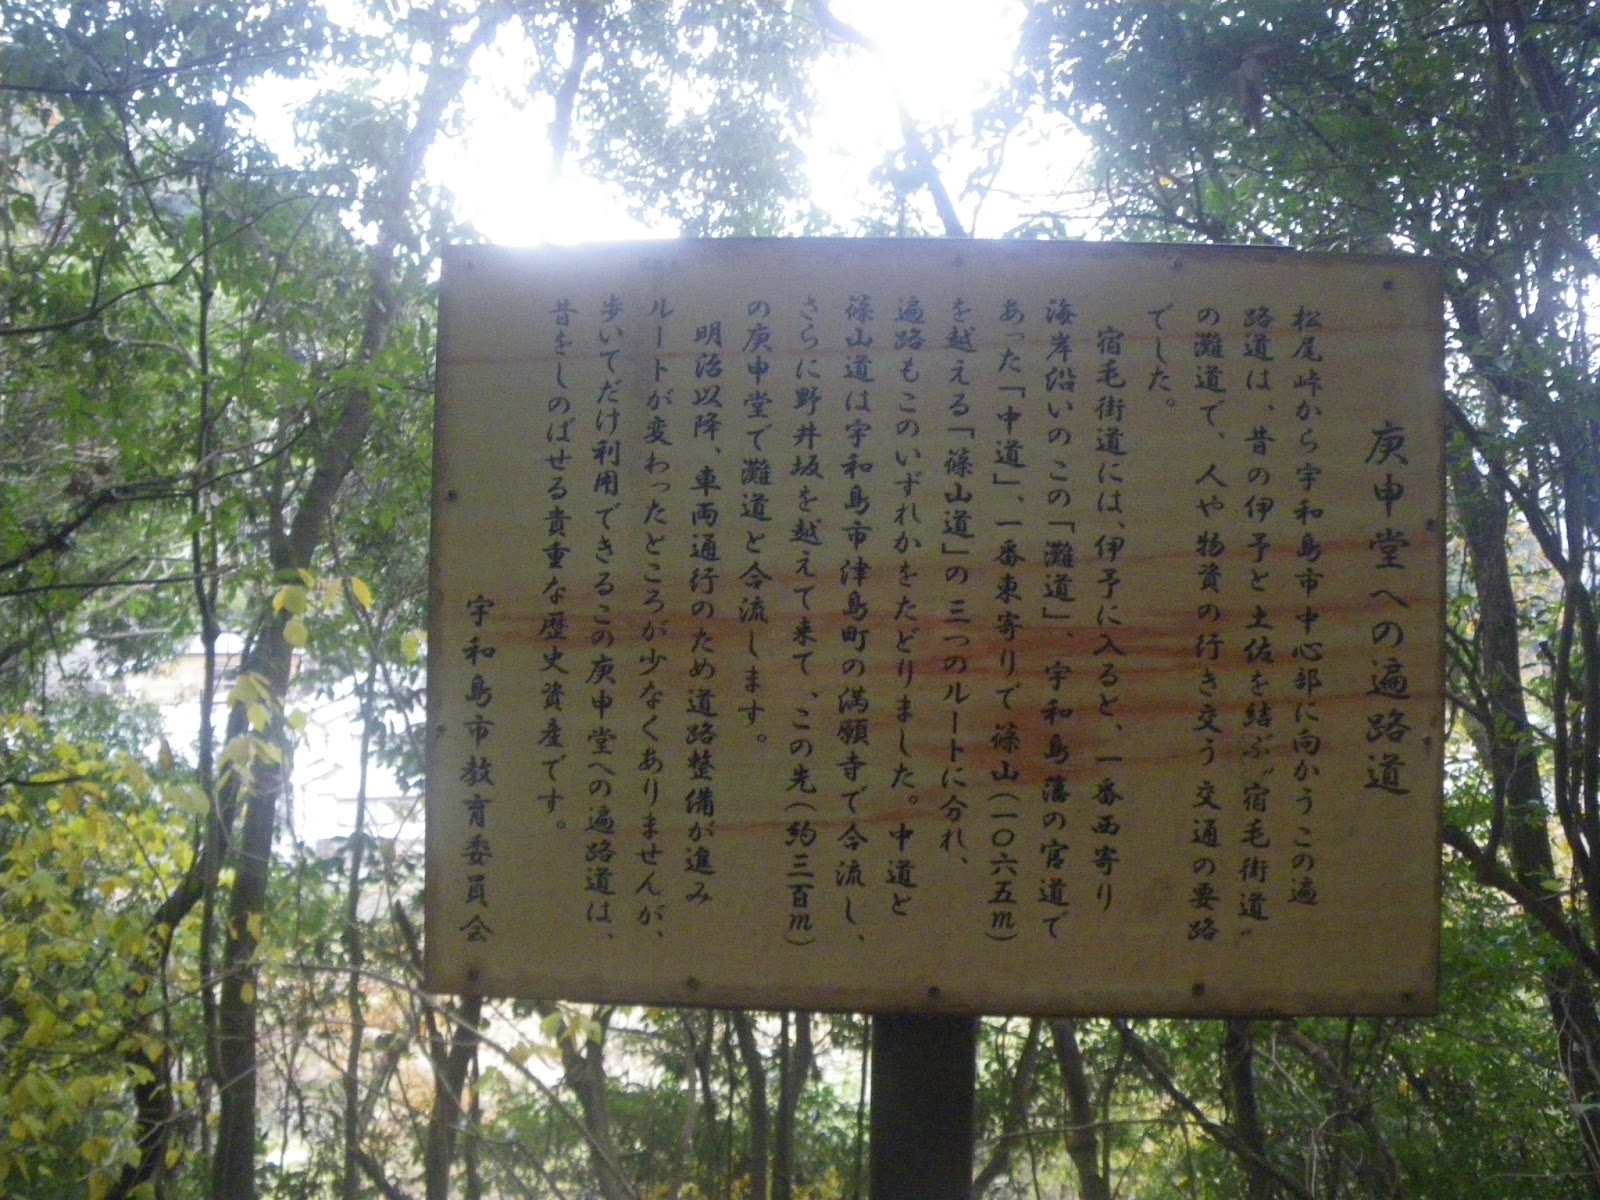 庚申堂への遍路道
松尾峠から宇和島市中心部に向かうこの遍
路道は、昔の伊予と土佐を結ぶ“宿毛街道”
の灘道で、人や物資の行き交う交通の要路
でした。
宿毛街道には、伊予に入ると、一番西寄り
海岸沿いのこの「灘道」、宇和島藩の官道で
あった「中道」、一番東寄りで篠山(一〇六五m)
を越える「篠山道」の三つのルートに分れ、
遍路もこのいずれかをたどりました。中道と
篠山道は宇和島市津島町の満願寺で合流し、
さらに野井坂を越えて来て、この先(約三百m)
の庚申堂で灘道と合流します。
明治以降、車両通行のため道路整備が進み
ルートが変わったところが少なくありませんが、
歩いてだけ利用できるこの庚申堂への遍路道は、
昔をしのばせる貴重な歴史資産です。
宇和島市教育委員会